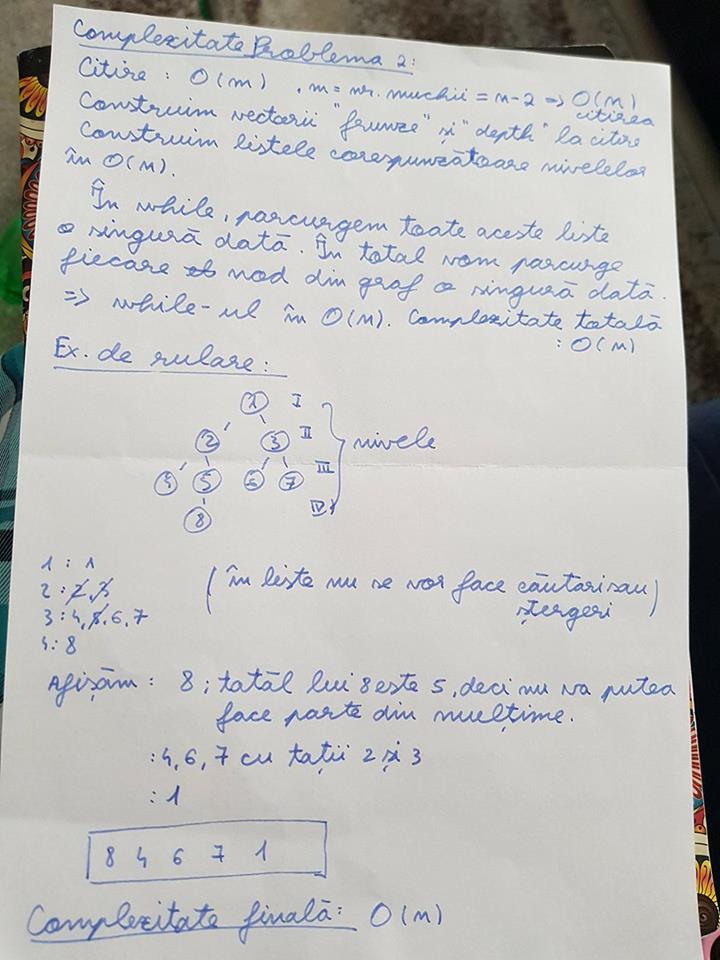 Complexitate Problema 2:
Citire : O(m) , m = nr. muchii = n-2 => O(n)
citirea
Construim vectorii "frunze" și "depth" la citire
Construim listele corespunzătoare nivelelor
în O(n).
În while, parcurgem toate aceste liste
o singură dată. În total vom parcurge
fiecare nod din graf o singură dată.
=> while-ul în O(n). Complexitate totală
: O(n)
Ex. de rulare:
1 I
2 3 II
nivele
4 5 6 7 III
8 IV
1 : 1
2 : 2,3
3 : 4,5,6,7
4 : 8
(în liste nu se vor face căutari sau
ștergeri)
Afișăm : 8 ; tatăl lui 8 este 5, deci nu va putea
face parte din mulțime.
: 4, 6, 7 cu tații 2 și 3
: 1
8 4 6 7 1
Complexitate finală: O(n)